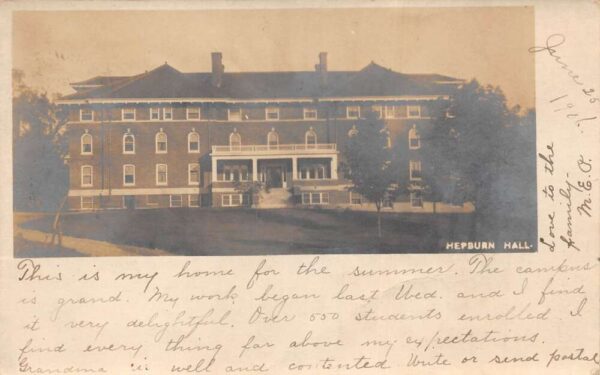 HEPBURN HALL.
June 26
Love to the
family-
M.E.P.
This is my home for the summer. The campus
is grand. My work began last Wed. and I find
it very delightful. Over 550 students enrolled. I
find every thing far above my expectations.
Grandma is well and contented Write or send postal